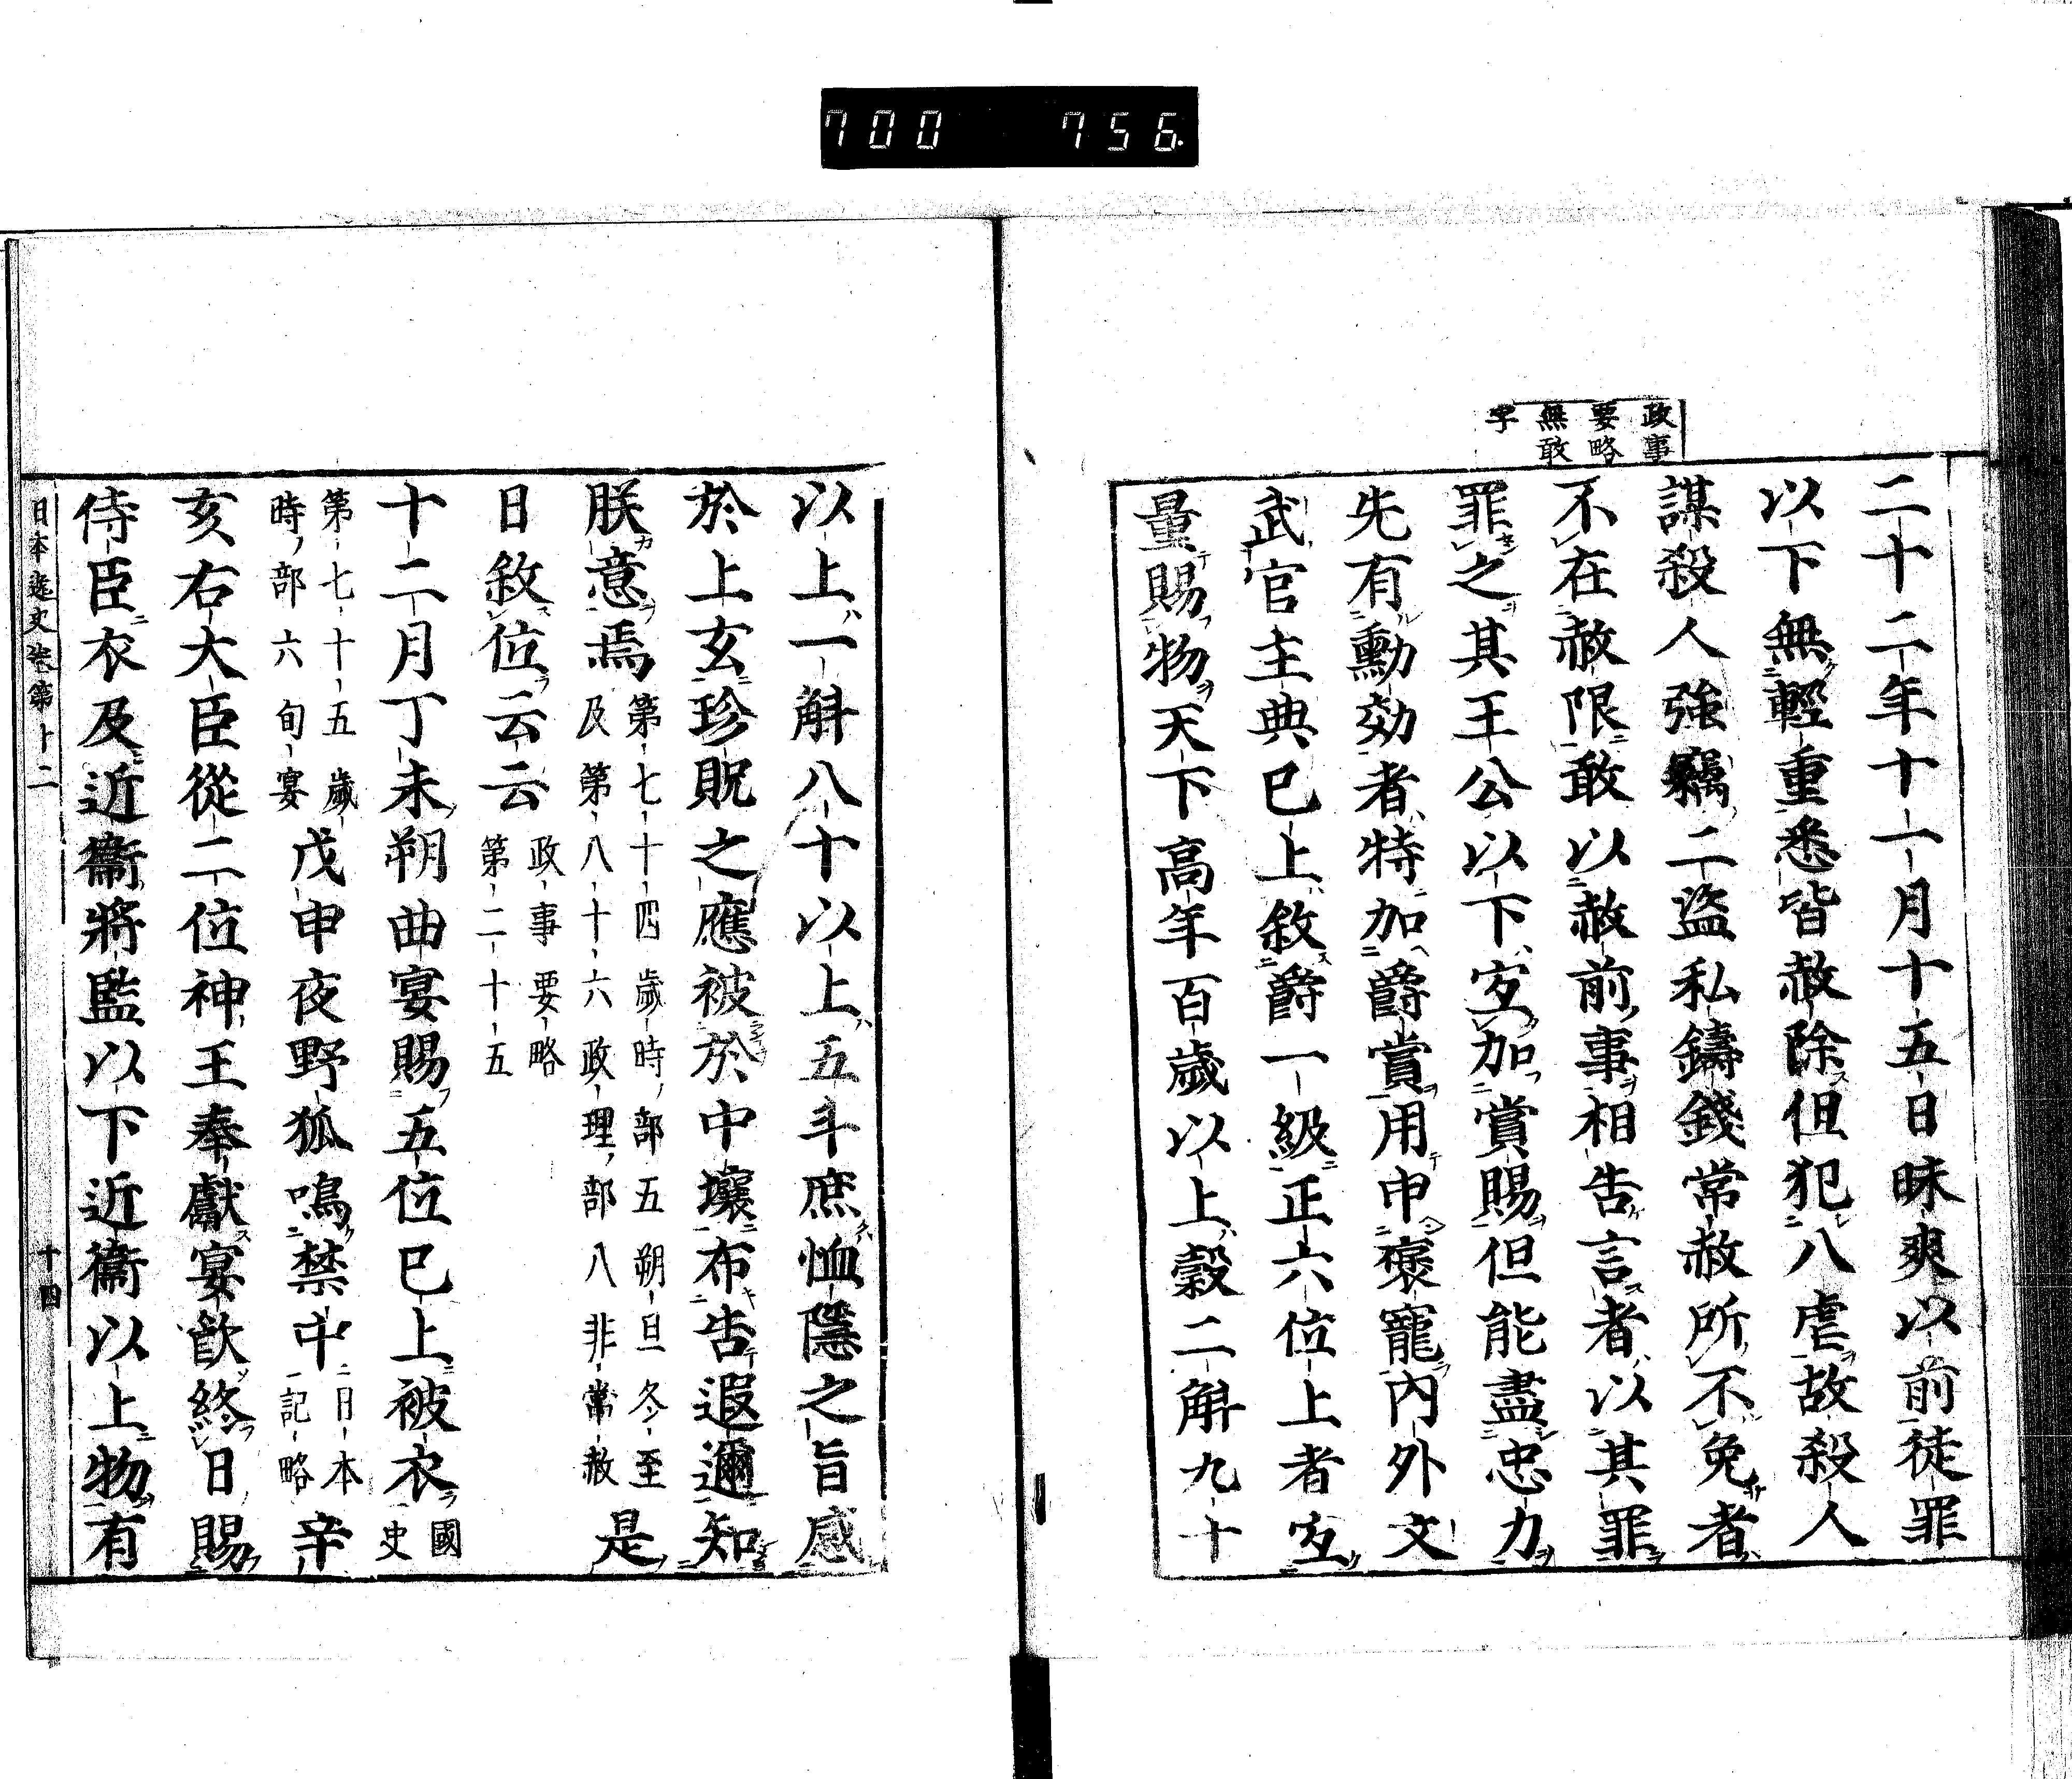 700 756.
政事
要略
無敢
字
二十二年十一月十五日昧爽以前徒罪
以下無輕重悉皆赦除但犯八虐故殺人
謀殺人強竊二盜私鑄錢常赦所不免者
不在赦限敢以赦前事相告言者以其罪
罪之其王公以下㝎加賞賜但能盡忠力
先有勳効者特加爵賞用申褒寵内外文
武官主典已上敘爵一級正六位上者㝎
量賜物天下高年百歲以上穀二斛九十
以上一斛八十以上五斗庶恤隱之旨感
於上玄珍貺之應被於中壤布告遐邇知
朕意焉第七十四歲時部五朔旦冬至
及第八十六政理部八非常赦是
日敘位云云政事要略
第二十五
十二月丁未朔曲宴賜五位已上被衣國
史
第七十五歲
時部六旬宴戊申夜野狐鳴禁中日本
記略辛
亥右大臣從二位神王奉獻宴飲終日賜
侍臣衣及近衞將監以下近衞以上物有
日本逸史卷第十二 十四